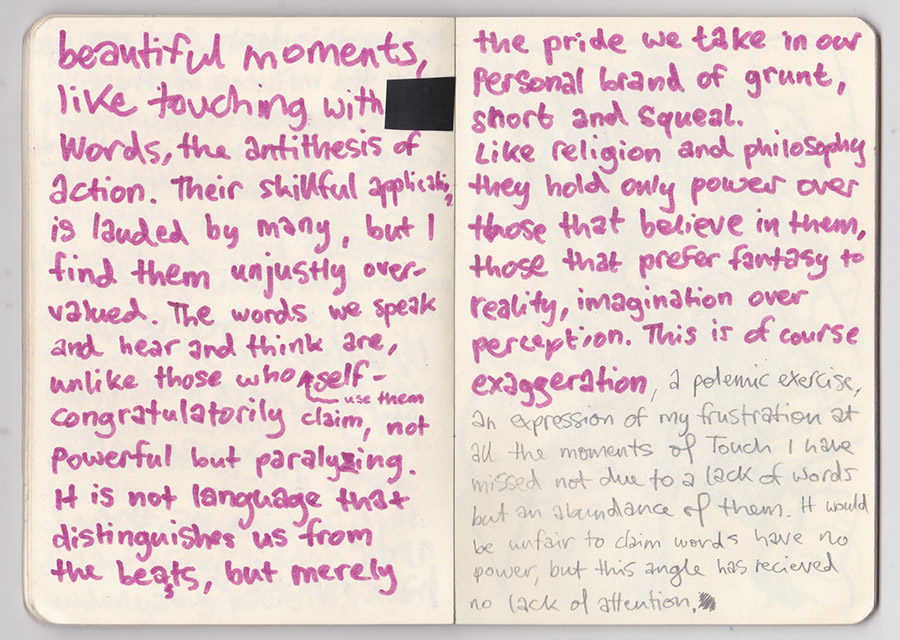 beautiful moments,
like touching with
words, the antithesis of
action. Their skillful application
is lauded by many, but I
find them unjustly over-
valued. The words we speak
and hear and think are,
unlike those who self-
use them
congratulatorily claim, not
powerful but paralyzing.
It is not language that
distinguishes us from
the beasts, but merely
the pride we take in our
personal brand of grunt,
snort and squeal.
Like religion and philosophy
they hold only power over
those that believe in them,
those that prefer fantasy to
reality, imagination over
perception. This is of course
exaggeration, a polemic exercise,
an expression of my frustration at
all the moments of Touch I have
missed not due to a lack of words
but an abundance of them. It would
be unfair to claim words have no
power, but this angle has recieved
no lack of attention.